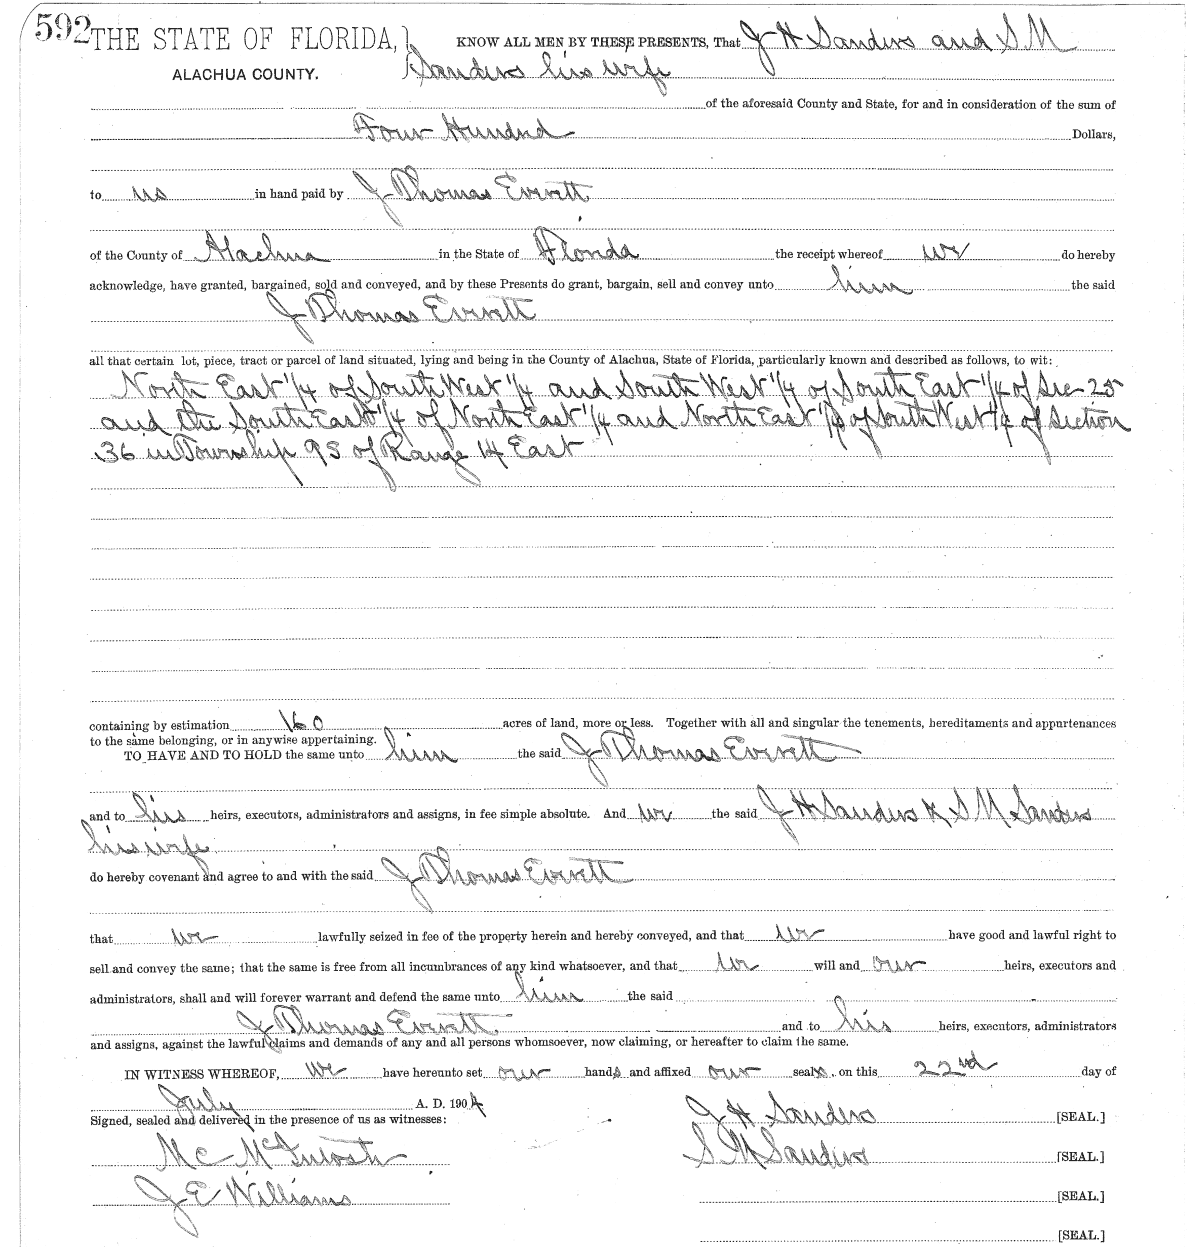 592 THE STATE OF FLORIDA, KNOW ALL MEN BY THESE PRESENTS, That J H Sanders and S M
ALACHUA COUNTY. Sanders his wife
of the aforesaid County and State, for and in consideration of the sum of
Four Hundred Dollars,
to us in hand paid by J Thomas Everett
of the County of Alachua in the State of Florida the receipt whereof we do hereby
acknowledge, have granted, bargained, sold and conveyed, and by these Presents do grant, bargain, sell and convey unto him the said
J Thomas Everett
all that certain lot, piece, tract or parcel of land situated, lying and being in the County of Alachua, State of Florida, particularly known and described as follows, to wit:
North East 1/4 of South West 1/4 and South West 1/4 of South East 1/4 of Sec 25
and the South East 1/4 of North East 1/4 and North East 1/4 of South West 1/4 of Section
36 in Township 9 S of Range 14 East
containing by estimation 160 acres of land, more or less. Together with all and singular the tenements, hereditaments and appurtenances
to the same belonging, or in anywise appertaining.
TO HAVE AND TO HOLD the same unto him the said J Thomas Everett
and to his heirs, executors, administrators and assigns, in fee simple absolute. And we the said J H Sanders & S M Sanders
his wife
do hereby covenant and agree to and with the said J Thomas Everett
that we lawfully seized in fee of the property herein and hereby conveyed, and that we have good and lawful right to
sell and convey the same; that the same is free from all incumbrances of any kind whatsoever, and that we will and our heirs, executors and
administrators, shall and will forever warrant and defend the same unto him the said
J Thomas Everett and to his heirs, executors, administrators
and assigns, against the lawful claims and demands of any and all persons whomsoever, now claiming, or hereafter to claim the same.
IN WITNESS WHEREOF, we have hereunto set our hands and affixed our seals on this 22nd day of
July A. D. 1904
Signed, sealed and delivered in the presence of us as witnesses: J H Sanders [SEAL.]
Mc McIntosh S M Sanders [SEAL.]
J E Williams [SEAL.]
[SEAL.]